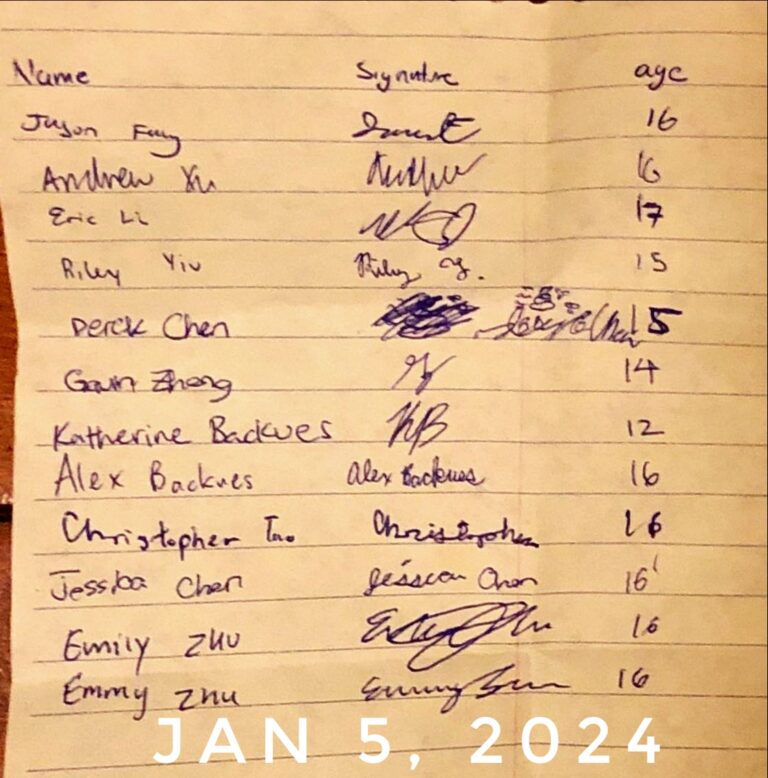 Name Signature age
Jason Fang 16
Andrew Xu Andrew 16
Eric Li 17
Riley Yiu Riley Y. 15
Derek Chen 15
Gavin Zheng 14
Katherine Backues KB 12
Alex Backues Alex Backues 16
Christopher Tao Christopher 16
Jessica Chen Jéssica Chen 16
Emily Zhu 16
Emmy Zhu 16
JAN 5, 2024